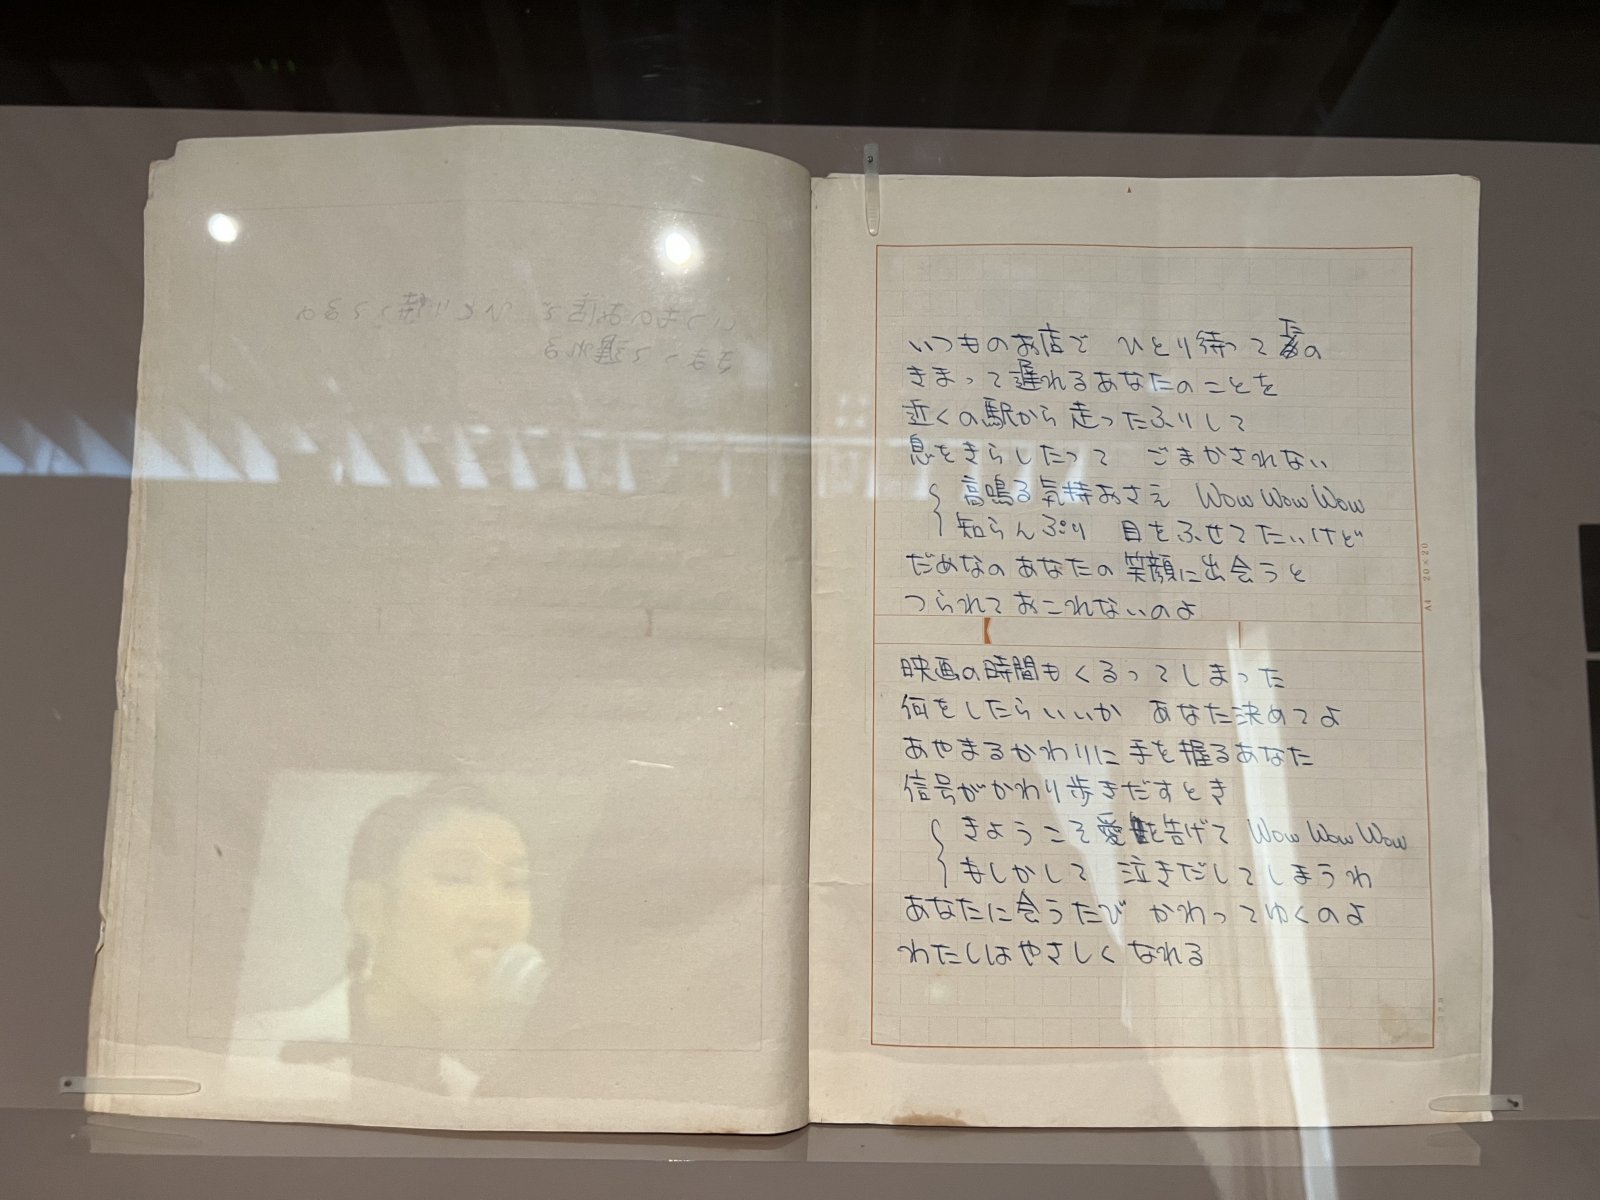 いつものお店で ひとり待ってたの
きまって遅れるあなたのことを
近くの駅から走ったふりして
息をきらしたって ごまかされない
高鳴る気持おさえ Wow Wow Wow
知らんぷり 目をふせてたいけど
だめなのあなたの笑顔に出会うと
つられておこれないのよ
映画の時間もくるってしまった
何をしたらいいか あなた決めてよ
あやまるかわりに手を握るあなた
信号がかわり歩きだすとき
きょうこそ愛を告げて Wow Wow Wow
もしかして 泣きだしてしまうわ
あなたに会うたび かわってゆくのよ
わたしはやさしくなれる
A4 20×20